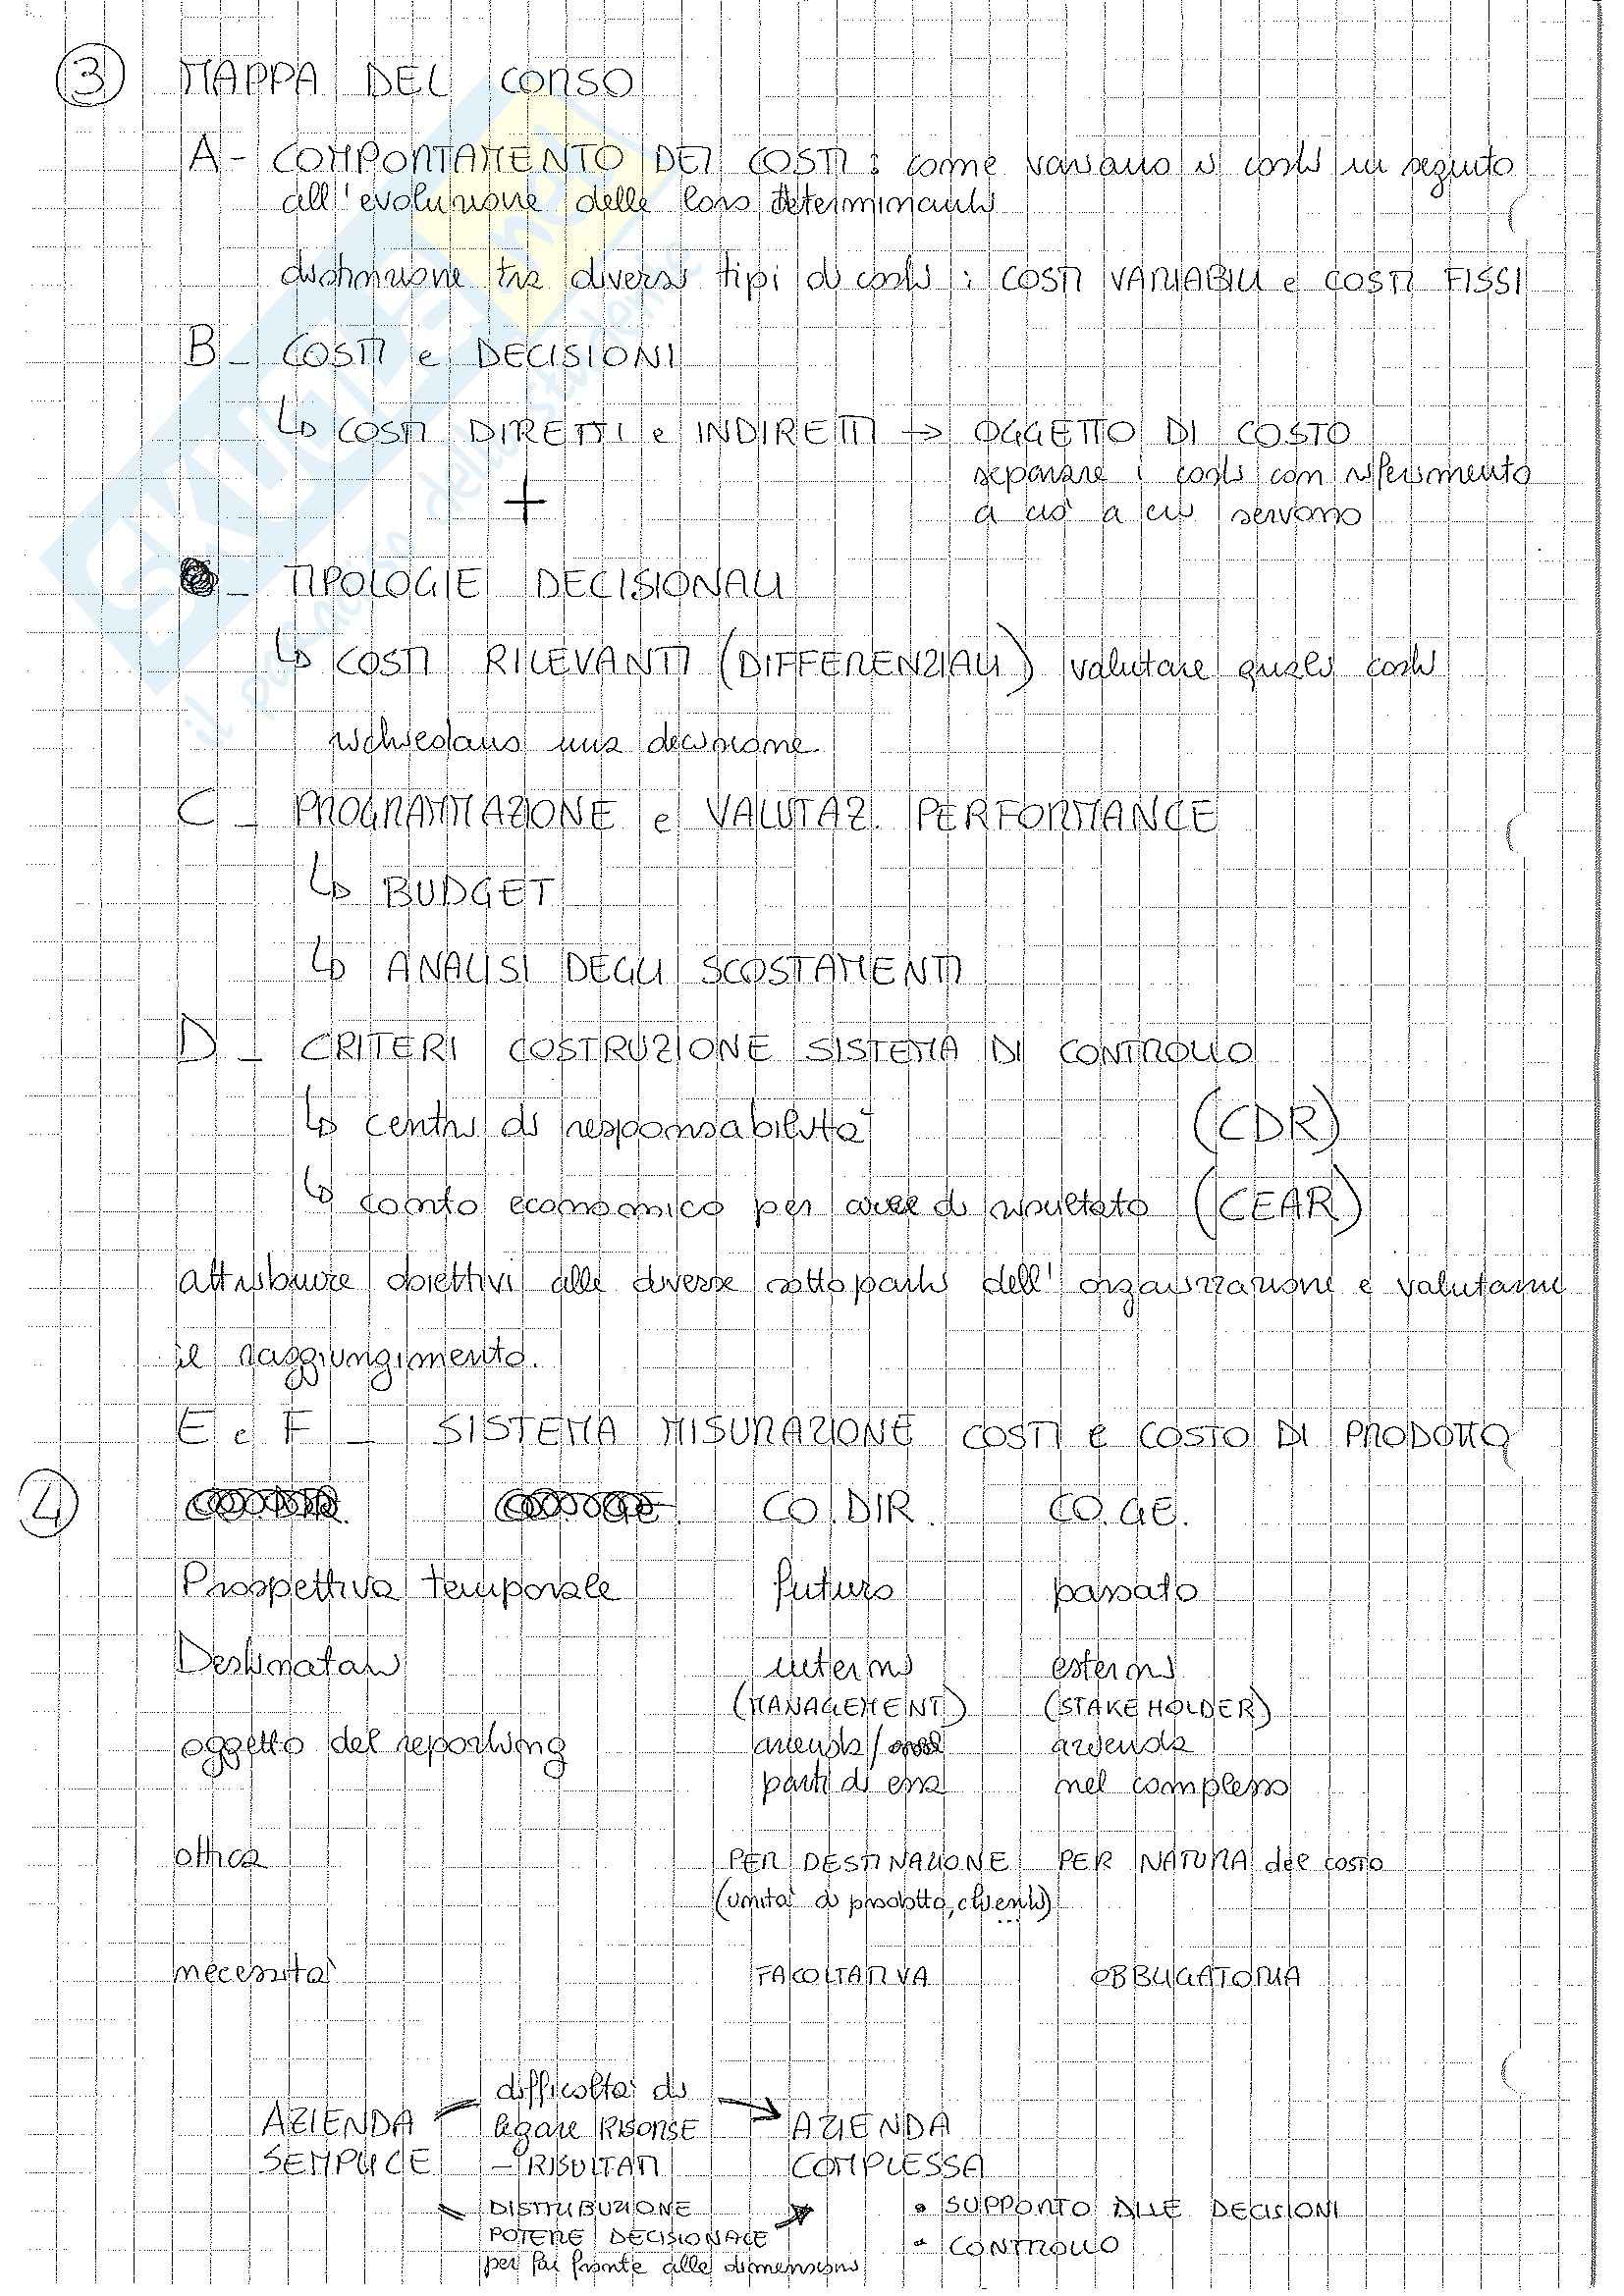 ③ MAPPA DEL CORSO
A - COMPORTAMENTO DEI COSTI : come variano i costi in seguito
all'evoluzione delle loro determinanti
distinzione tra diversi tipi di costi : COSTI VARIABILI e COSTI FISSI
B - COSTI e DECISIONI
↳ COSTI DIRETTI e INDIRETTI → OGGETTO DI COSTO
separare i costi con riferimento
a ciò a cui servono
+
- TIPOLOGIE DECISIONALI
↳ COSTI RILEVANTI (DIFFERENZIALI) valutare quali costi
richiedano una decisione.
C - PROGRAMMAZIONE e VALUTAZ. PERFORMANCE
↳ BUDGET
↳ ANALISI DEGLI SCOSTAMENTI
D - CRITERI COSTRUZIONE SISTEMA DI CONTROLLO
↳ centri di responsabilità (CDR)
↳ conto economico per aree di risultato (CEAR)
attribuire obiettivi alle diverse sottoparti dell'organizzazione e valutarne
il raggiungimento.
E e F - SISTEMA MISURAZIONE COSTI e COSTO DI PRODOTTO
④ CO.DIR. CO.GE.
Prospettiva temporale futuro passato
Destinatari interni esterni
(MANAGEMENT) (STAKEHOLDER)
oggetto del reporting azienda/ azienda
parti di essa nel complesso
ottica PER DESTINAZIONE PER NATURA del costo
(unità di prodotto, clienti)
...
necessità FACOLTATIVA OBBLIGATORIA
difficoltà di
AZIENDA legare RISORSE AZIENDA
SEMPLICE - RISULTATI COMPLESSA
DISTRIBUZIONE • SUPPORTO ALLE DECISIONI
POTERE DECISIONALE • CONTROLLO
per far fronte alle dimensioni